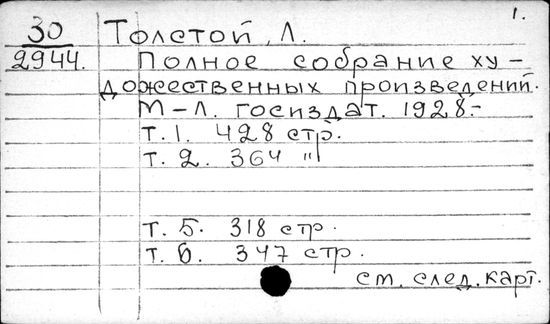 1.
30 Толстой, Л.
2944. Полное собрание ху-
дожественных произведений.
М-Л. госиздат. 1928.-
т. 1. 428 стр.
т. 2. 364 "
т. 5. 318 стр.
т. 6. 347 стр.
см. след. карт.